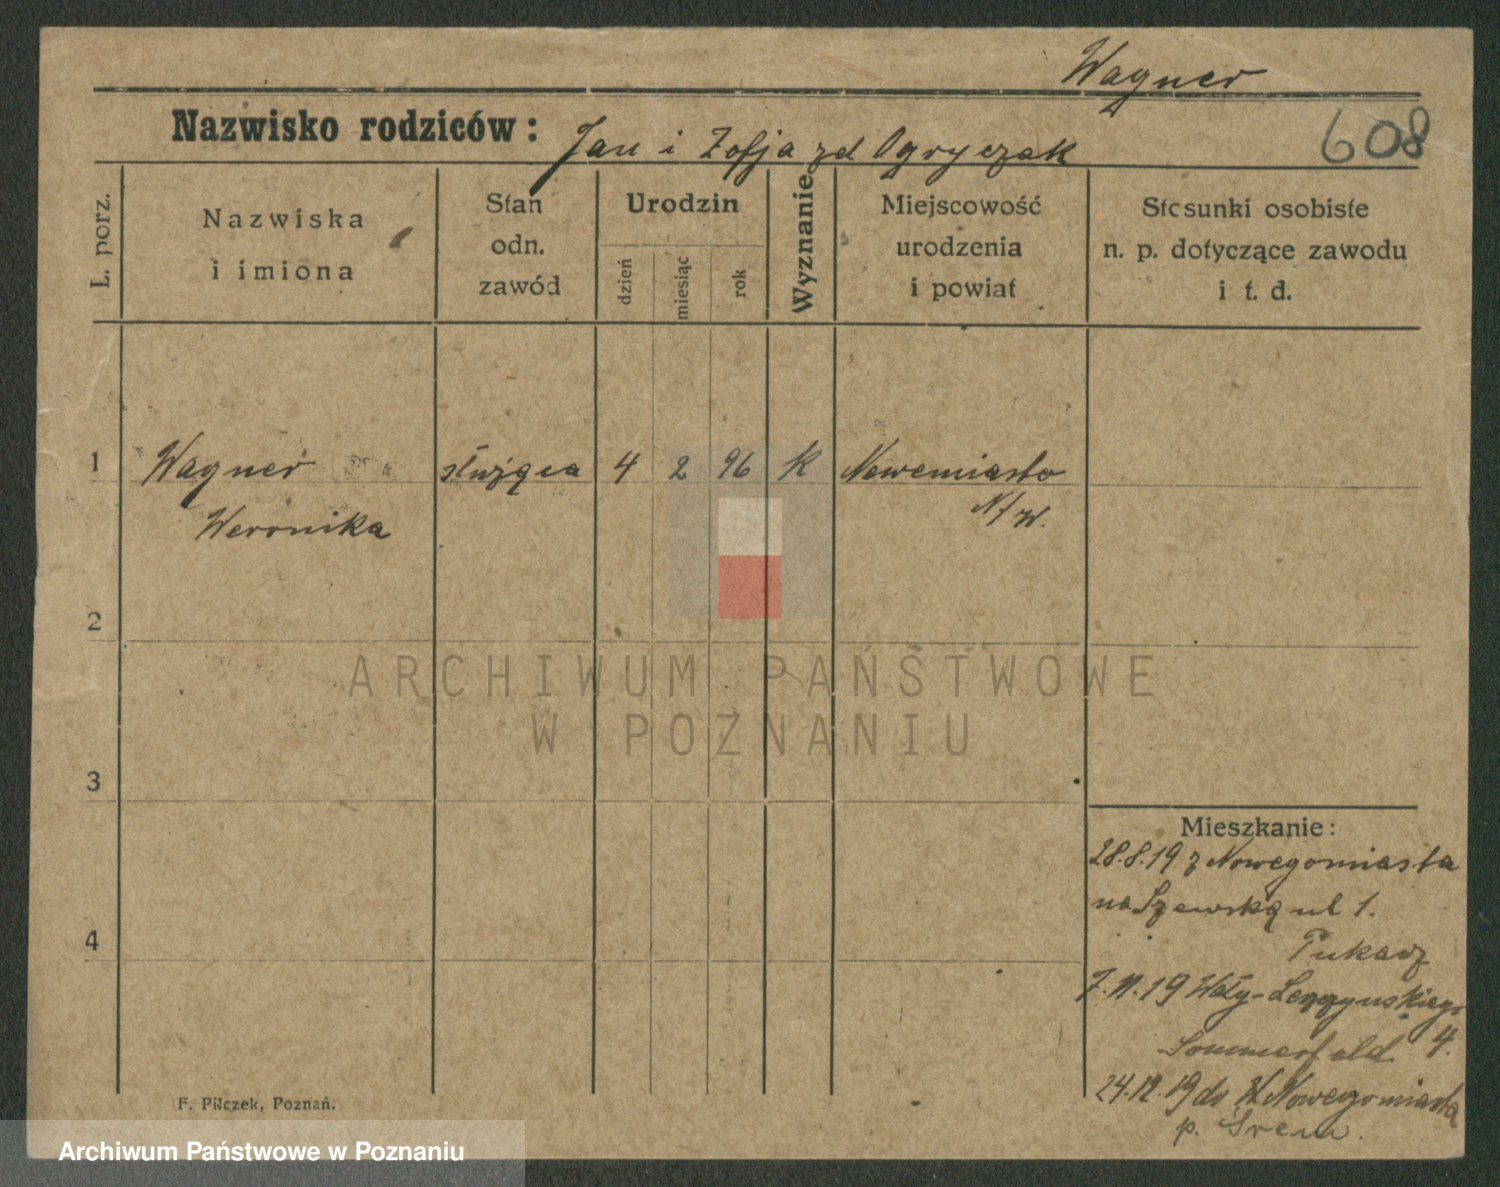 Wagner
Nazwisko rodziców: Jan i Zofja zd Ogryczak
608
L. porz.
Nazwiska
i imiona
Stan
odn.
zawód
Urodzin
dzień
miesiąc
rok
Wyznanie
Miejscowość
urodzenia
i powiat
Stosunki osobiste
n. p. dotyczące zawodu
i t. d.
1 Wagner służąca 4 2 96 K Nowemiasto
Weronika N/W.
2
3
4
ARCHIWUM PAŃSTWOWE
W POZNANIU
Mieszkanie:
28.8.19 z Nowegomiasta
na Szewską ul 1.
Tukacz
7.11.19 Wały-Leszczyńskiego
Sommerfeld 4.
24.12.19 do Nowegomiasta
p. Śrem.
F. Pilczek, Poznań.
Archiwum Państwowe w Poznaniu